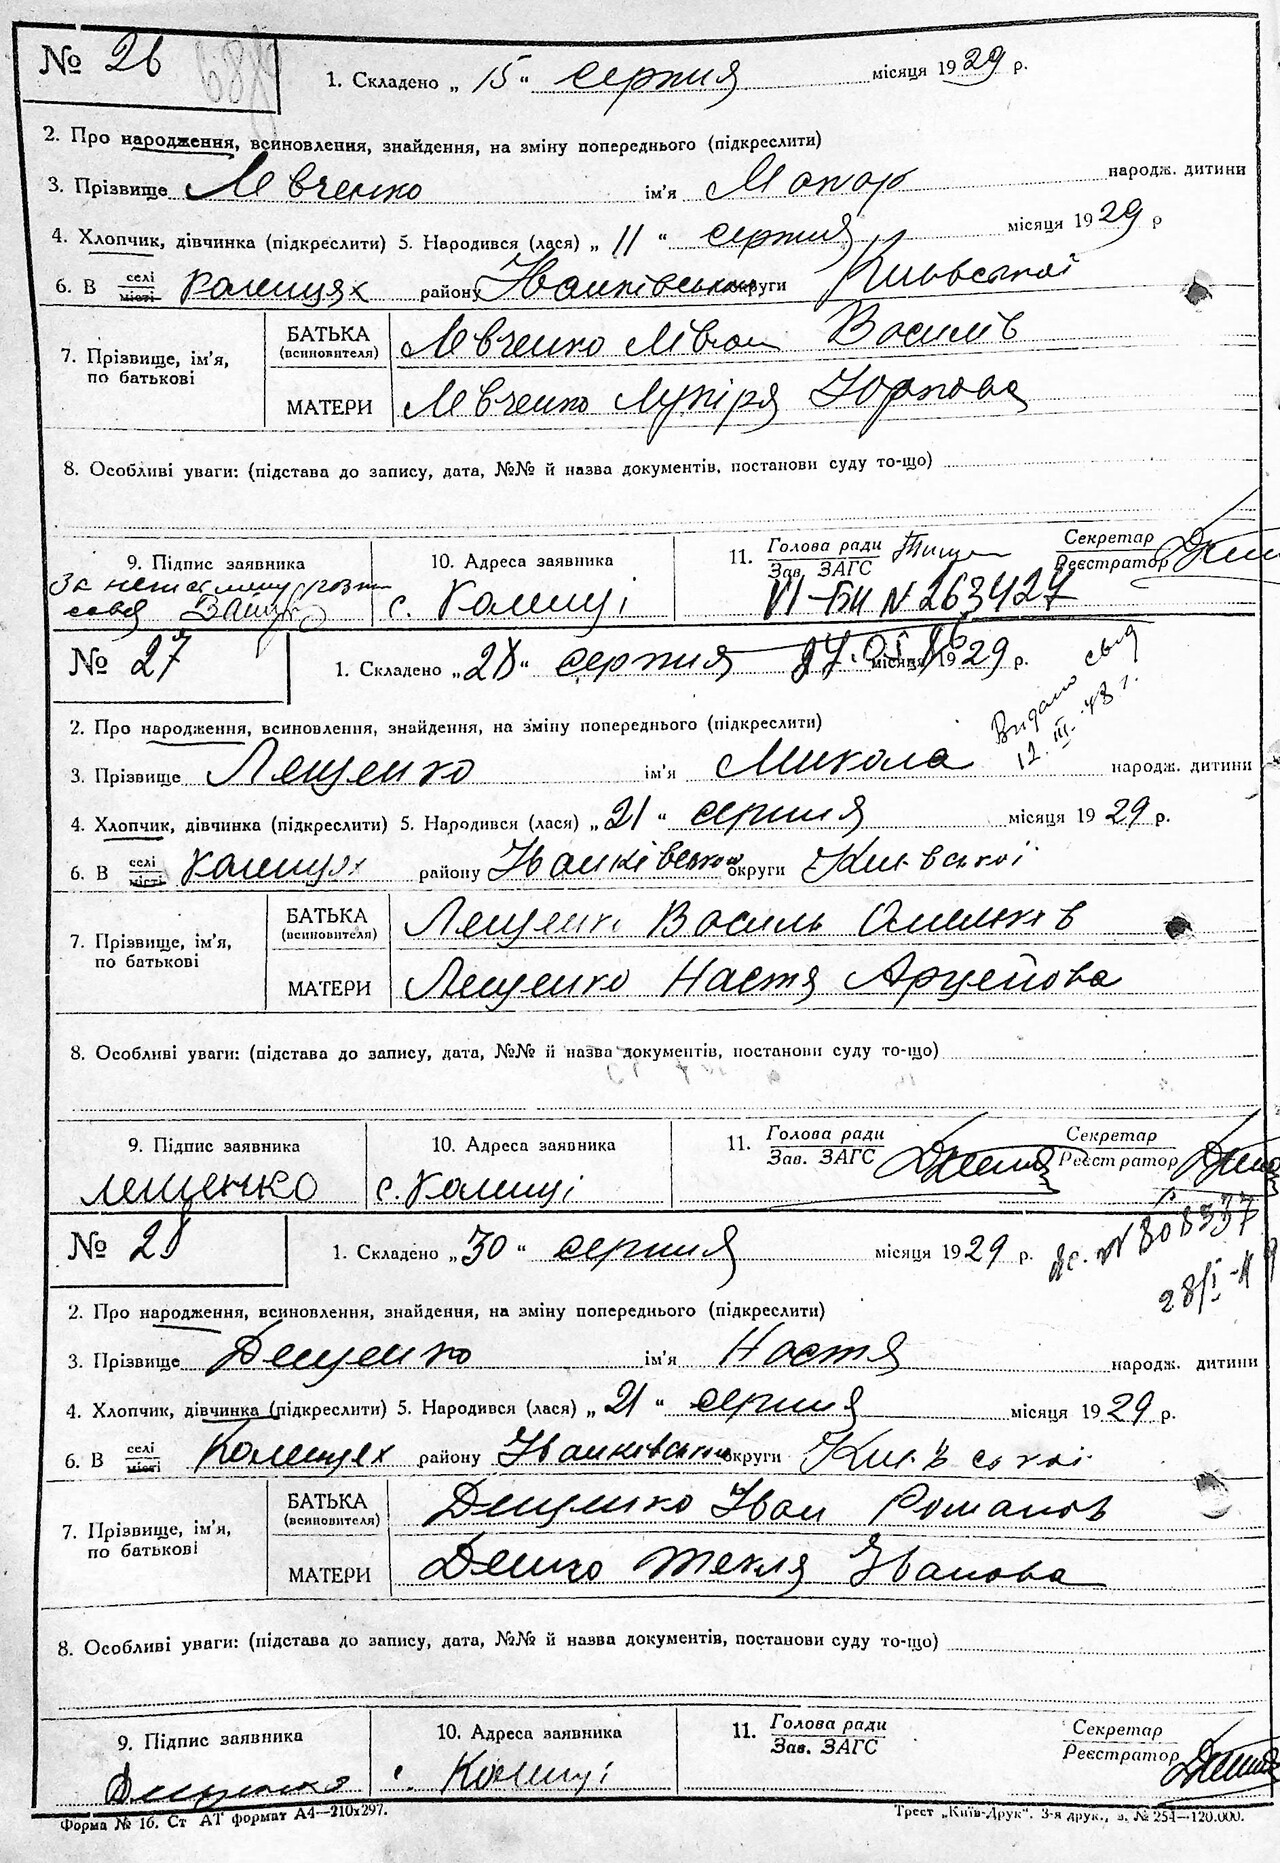 № 26
1. Складено „15“ серпня місяця 1929 р.
2. Про народження, всиновлення, знайдення, на зміну попереднього (підкреслити)
3. Прізвище Левченко ім'я Макар народж. дитини
4. Хлопчик, дівчинка (підкреслити) 5. Народився (лася) „11“ серпня місяця 1929 р
6. В селі місті Коленцях району Іванківського округи Київської
7. Прізвище, ім'я, по батькові
БАТЬКА (всиновителя) Левченко Левон Василів
МАТЕРИ Левченко Лукіря Юркова
8. Особливі уваги: (підстава до запису, дата, №№ й назва документів, постанови суду то-що)
9. Підпис заявника
10. Адреса заявника
11. Голова ради Зав. ЗАГС
Секретар Реєстратор
За неписьменну розпи
сався
с. Коленці
VI-БК N 263427
№ 27
1. Складено „28“ серпня місяця 1929 р.
Видано свід
12. III. 48 г.
2. Про народження, всиновлення, знайдення, на зміну попереднього (підкреслити)
3. Прізвище Лещенко ім'я Микола народж. дитини
4. Хлопчик, дівчинка (підкреслити) 5. Народився (лася) „21“ серпня місяця 1929 р.
6. В селі місті Коленцях району Іванківського округи Київської
7. Прізвище, ім'я, по батькові
БАТЬКА (всиновителя) Лещенко Василь Омельків
МАТЕРИ Лещенко Настя
8. Особливі уваги: (підстава до запису, дата, №№ й назва документів, постанови суду то-що)
9. Підпис заявника
10. Адреса заявника
11. Голова ради Зав. ЗАГС
Секретар Реєстратор
Лещенко
с. Коленці
№ 28
1. Складено „30“ серпня місяця 1929 р.
N 808337
2. Про народження, всиновлення, знайдення, на зміну попереднього (підкреслити)
3. Прізвище Дещенко ім'я Настя народж. дитини
4. Хлопчик, дівчинка (підкреслити) 5. Народився (лася) „21“ серпня місяця 1929 р.
6. В селі місті Коленцях району Іванківського округи Київської
7. Прізвище, ім'я, по батькові
БАТЬКА (всиновителя) Дещенко Іван Романов
МАТЕРИ Текля Іванова
8. Особливі уваги: (підстава до запису, дата, №№ й назва документів, постанови суду то-що)
9. Підпис заявника
10. Адреса заявника
11. Голова ради Зав. ЗАГС
Секретар Реєстратор
Дещенко
с. Коленці
Форма № 16. Ст АТ формат А4—210x297.
Трест „Київ-Друк“. 3-я друк., з. № 254—120.000.